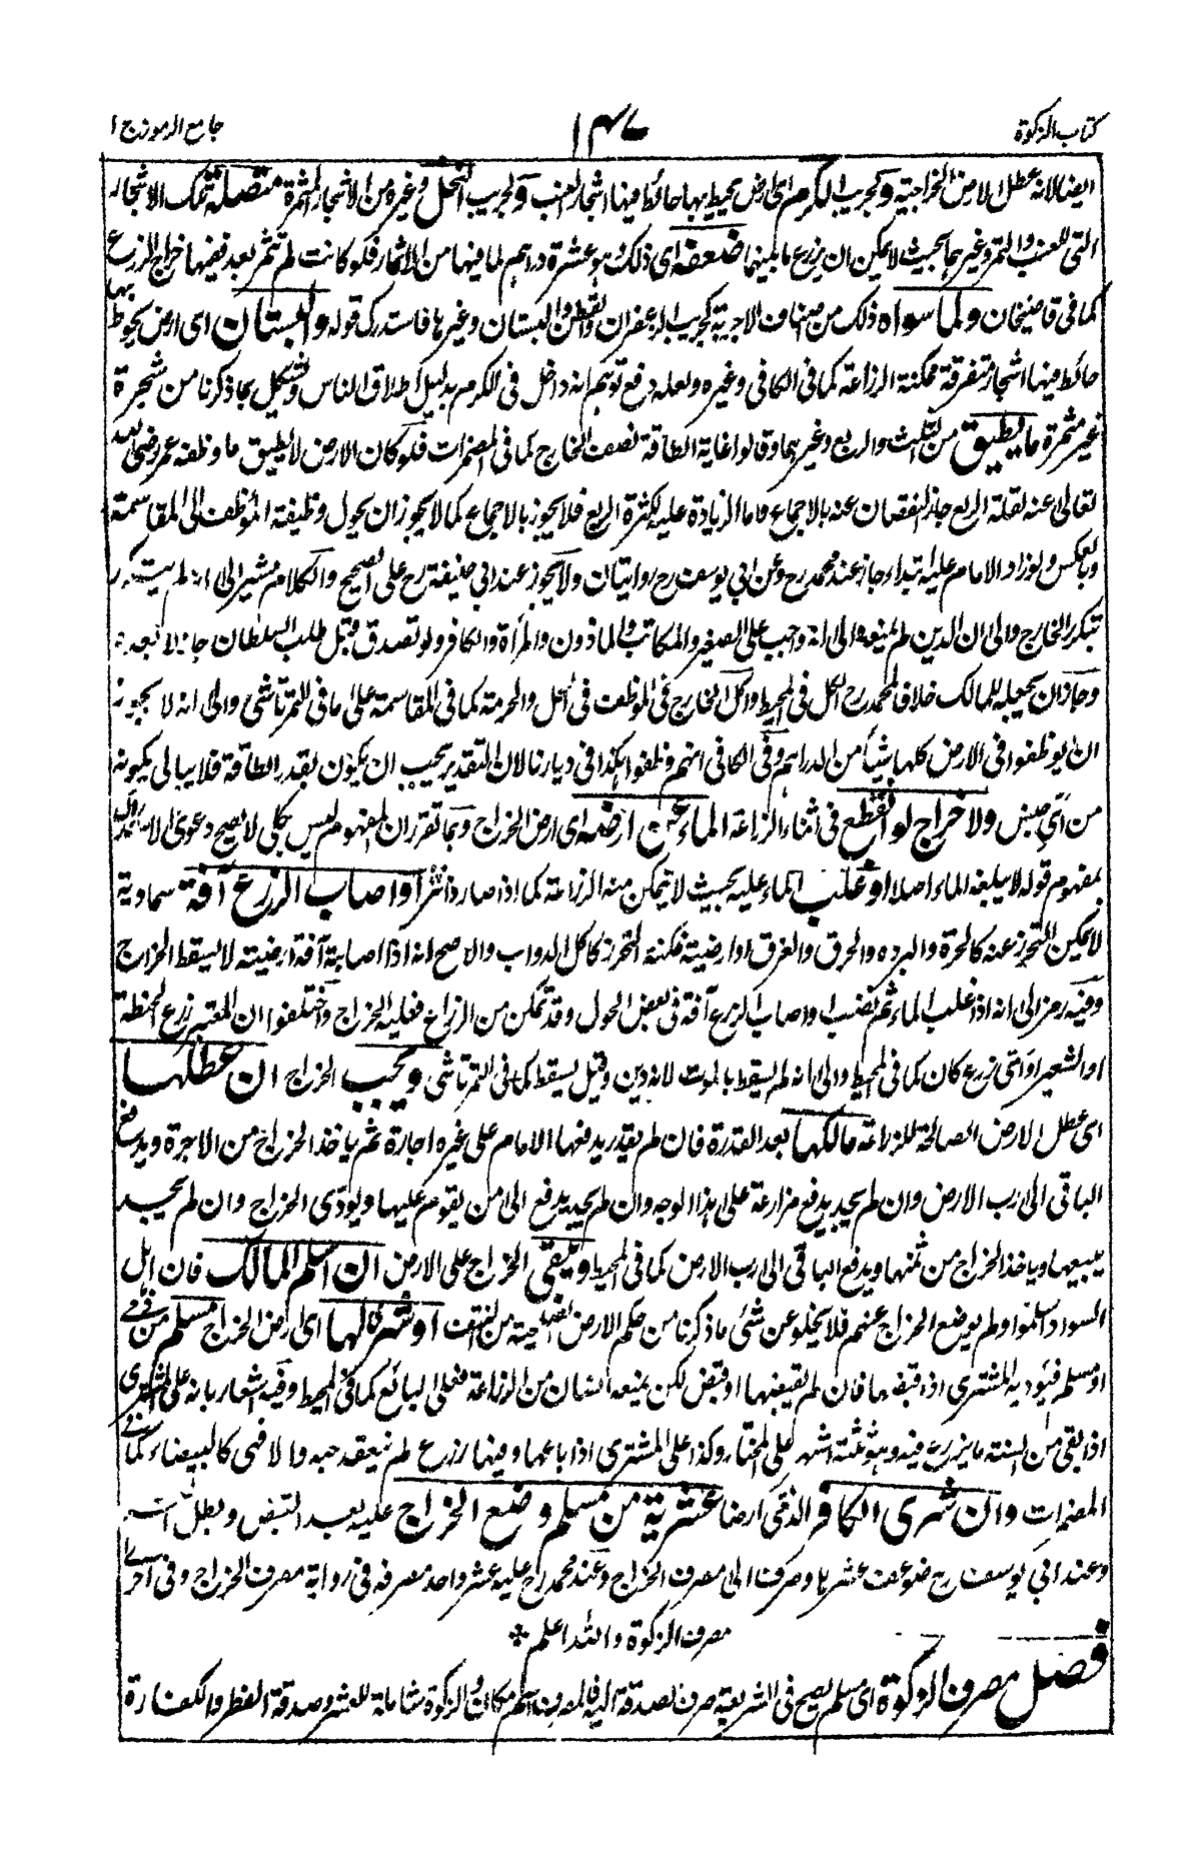 كتاب الزكوة
١٤٧
جامع الرموز ج ١
ايضا لانه عطل الارض الخراجية ولجريب الكرم اى ارض يحيط بها حائط فيها اشجار العنب ولجريب النخل وغيره من الاشجار المثمرة متصلة تلك الاشجار
التى للعنب والتمر وغيرهما بحيث لا يمكن ان يزرع ما بينهما ضعفه اى ذلك وهو عشرة دراهم لما فيها من الاثمار فلو كانت لم تثمر بعد ففيها خراج الزرع
كما فى قاضيخان ولما سواه ذلك من اصناف الاجربة كجريب الزعفران والقطن والبستان وغيرها فاستدرك قوله والبستان اى ارض يحوط بها
حائط فيها اشجار متفرقة ممكنة الزراعة كما فى الكافى وغيره ولعله دفع توهم انه داخل فى الكرم بدليل اطلاق الناس ويشكل بما ذكرنا من شجرة
غير مثمرة ما يطيق من الثلث والربع وغيرهما وقالوا غاية الطاقة نصف الخارج كما فى المضمرات فلو كان الارض لا يطيق ما وظفه عمر رضى الله
تعالى عنه لقلة الريع جاز النقصان عنه بالاجماع واما الزيادة عليه لكثرة الريع فلا يجوز بالاجماع كما لا يجوز ان يحول وظيفته الموظف الى المقاسمة
وبالعكس ولو زاد الامام عليه ابتداء جاز عند محمد رح وعن ابى يوسف رح روايتان ولا يجوز عند ابى حنيفة رح على الصحيح والكلام مشير الى انه لم يتكرر
بتكرر الخارج والى ان الدين لم يمنعه والى انه وجب على الصغير والمكاتب والماذون والمرأة والكافر ولو تصدق قبل طلب السلطان جاز لا بعده
وجاز ان يجعله للمالك خلافا لمحمد رح الكل فى المحيط واكل الخارج فى الموظف فى الحل والحرمة كما فى المقاسمة على ما فى التمرتاشى والى انه لا يجوز
ان يوظفوا فى الارض كلها شيئا من الدراهم وفى الكافى انهم وظفوا هكذا فى ديارنا لان التقدير يجب ان يكون بقدر الطاقة فلا يبالى بكونه
من اى جنس ولا خراج لو انقطع فى اثناء الزراعة الماء عن ارضه اى ارض الخراج وبما تقرر ان المفهوم ليس بكلى لا يصح دعوى الاستدراك
بمفهوم قوله لا يبلغه الماء اصلا او غلب الماء عليه بحيث لا يتمكن منه الزراعة كما اذا صار ذا نز او اصاب الزرع آفة سماوية
لا يمكن التحرز عنه كالحرة والبرده والحرق والغرق او ارضية ممكنة التحرز كاكل الدواب والاصح انه اذا اصابته آفة ارضيته لا يسقط الخراج
وفيه رمز الى انه اذا غلب الماء ثم نضب او اصاب الزرع آفة فى بعض الحول وقد تمكن من الزراع فعليه الخراج واختلفوا ان المعتبر زرع الحنطة
او الشعير او اى زرع كان كما فى المحيط والى انه لم يسقط بالموت لانه دين وقيل يسقط كما فى التمرتاشى ويجب الخراج ان عطلها
اى عطل الارض الصالحة للزراعة مالكها بعد القدرة فان لم يقدر يدفعها الامام على غيره اجارة ثم ياخذ الخراج من الاجرة ويدفع
الباقى الى رب الارض وان لم يجد يدفع مزارعة على هذا الوجه وان لم يجد يدفع الى من يقوم عليها ويودى الخراج وان لم يجد
يبيعها وياخذ الخراج من ثمنها ويدفع الباقى الى رب الارض كما فى المحيط ويبقى الخراج على الارض ان اسلم المالك فان اهل
السواد اسلموا ولم يوضع الخراج عنهم فلا يخلو عن شئ ما ذكرنا من حكم الارض من النتف او شراها اى ارض الخراج مسلم من ذمى
او مسلم فيوديه المشترى اذا قبضها فان لم يقبضها او قبض لكن يمنعه انسان من الزراعة فعلى البائع كما فى المحيط وفيه اشعار بانه على المشترى
اذا بقى من السنة ما يزرع فيه وهو ثلثة اشهر على المختار وكذا على المشترى اذا باعها وفيها زرع لم ينعقد حبه والا فهى كالبيضاء كما فى
المضمرات وان شرى الكافر الذمى ارضا عشرية من مسلم وضع الخراج عليه بعد القبض وبطل العشر
وعند ابى يوسف رح ضوعف عشرها وصرف الى مصرف الخراج وعند محمد رح عليه عشر واحد مصرفه فى رواية مصرف الخراج وفى اخرى
مصرف الزكوة والله اعلم
فصل مصرف الزكوة اى مسلم يصح فى الشريعة صرف الصدقة اليه فالمصرف اسم مكان والزكوة شاملة للعشر وصدقة الفطر والكفارة